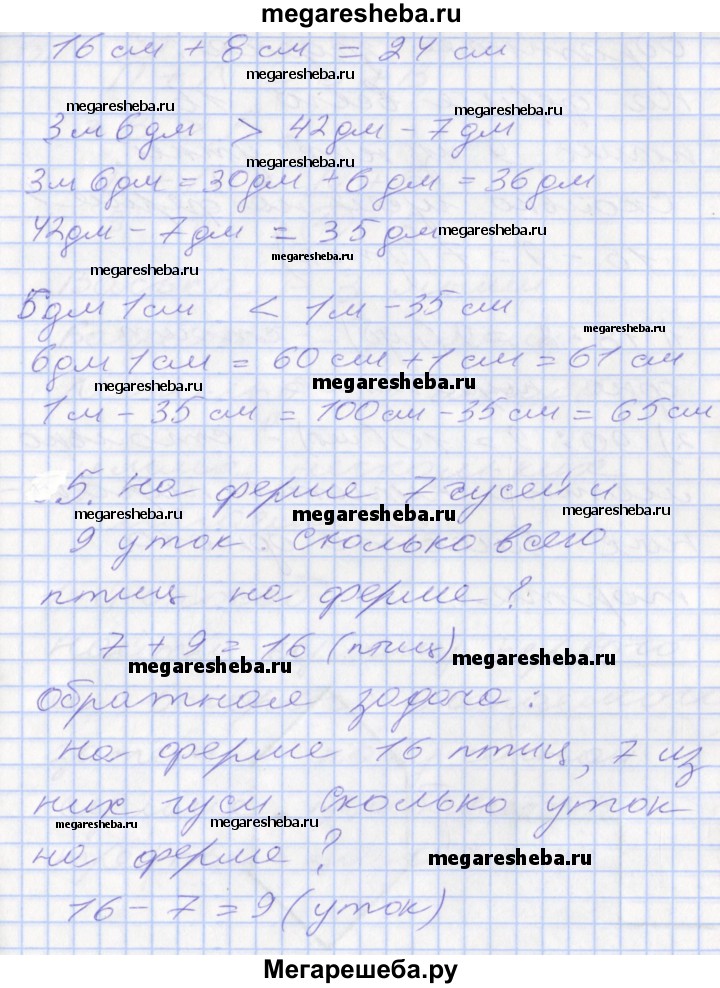 megaresheba.ru
16 см + 8 см = 24 см
megaresheba.ru
megaresheba.ru megaresheba.ru
3м 6дм > 42дм - 7дм
megaresheba.ru
3м 6дм = 30дм + 6 дм = 36дм
42дм - 7дм = 35 дм megaresheba.ru
megaresheba.ru megaresheba.ru
5дм 1см < 1м - 35 см
megaresheba.ru
6дм 1 см = 60 см + 1 см = 61 см
megaresheba.ru megaresheba.ru
1м - 35 см = 100см - 35 см = 65 см
5. На ферме 7 гусей и
megaresheba.ru megaresheba.ru megaresheba.ru
9 уток. Сколько всего
птиц на ферме?
7 + 9 = 16 (птиц)
megaresheba.ru megaresheba.ru
Обратная задача:
На ферме 16 птиц, 7 из
них гуси. Сколько уток
megaresheba.ru megaresheba.ru
на ферме?
megaresheba.ru
16 - 7 = 9 (уток)
Мегарешеба.ру